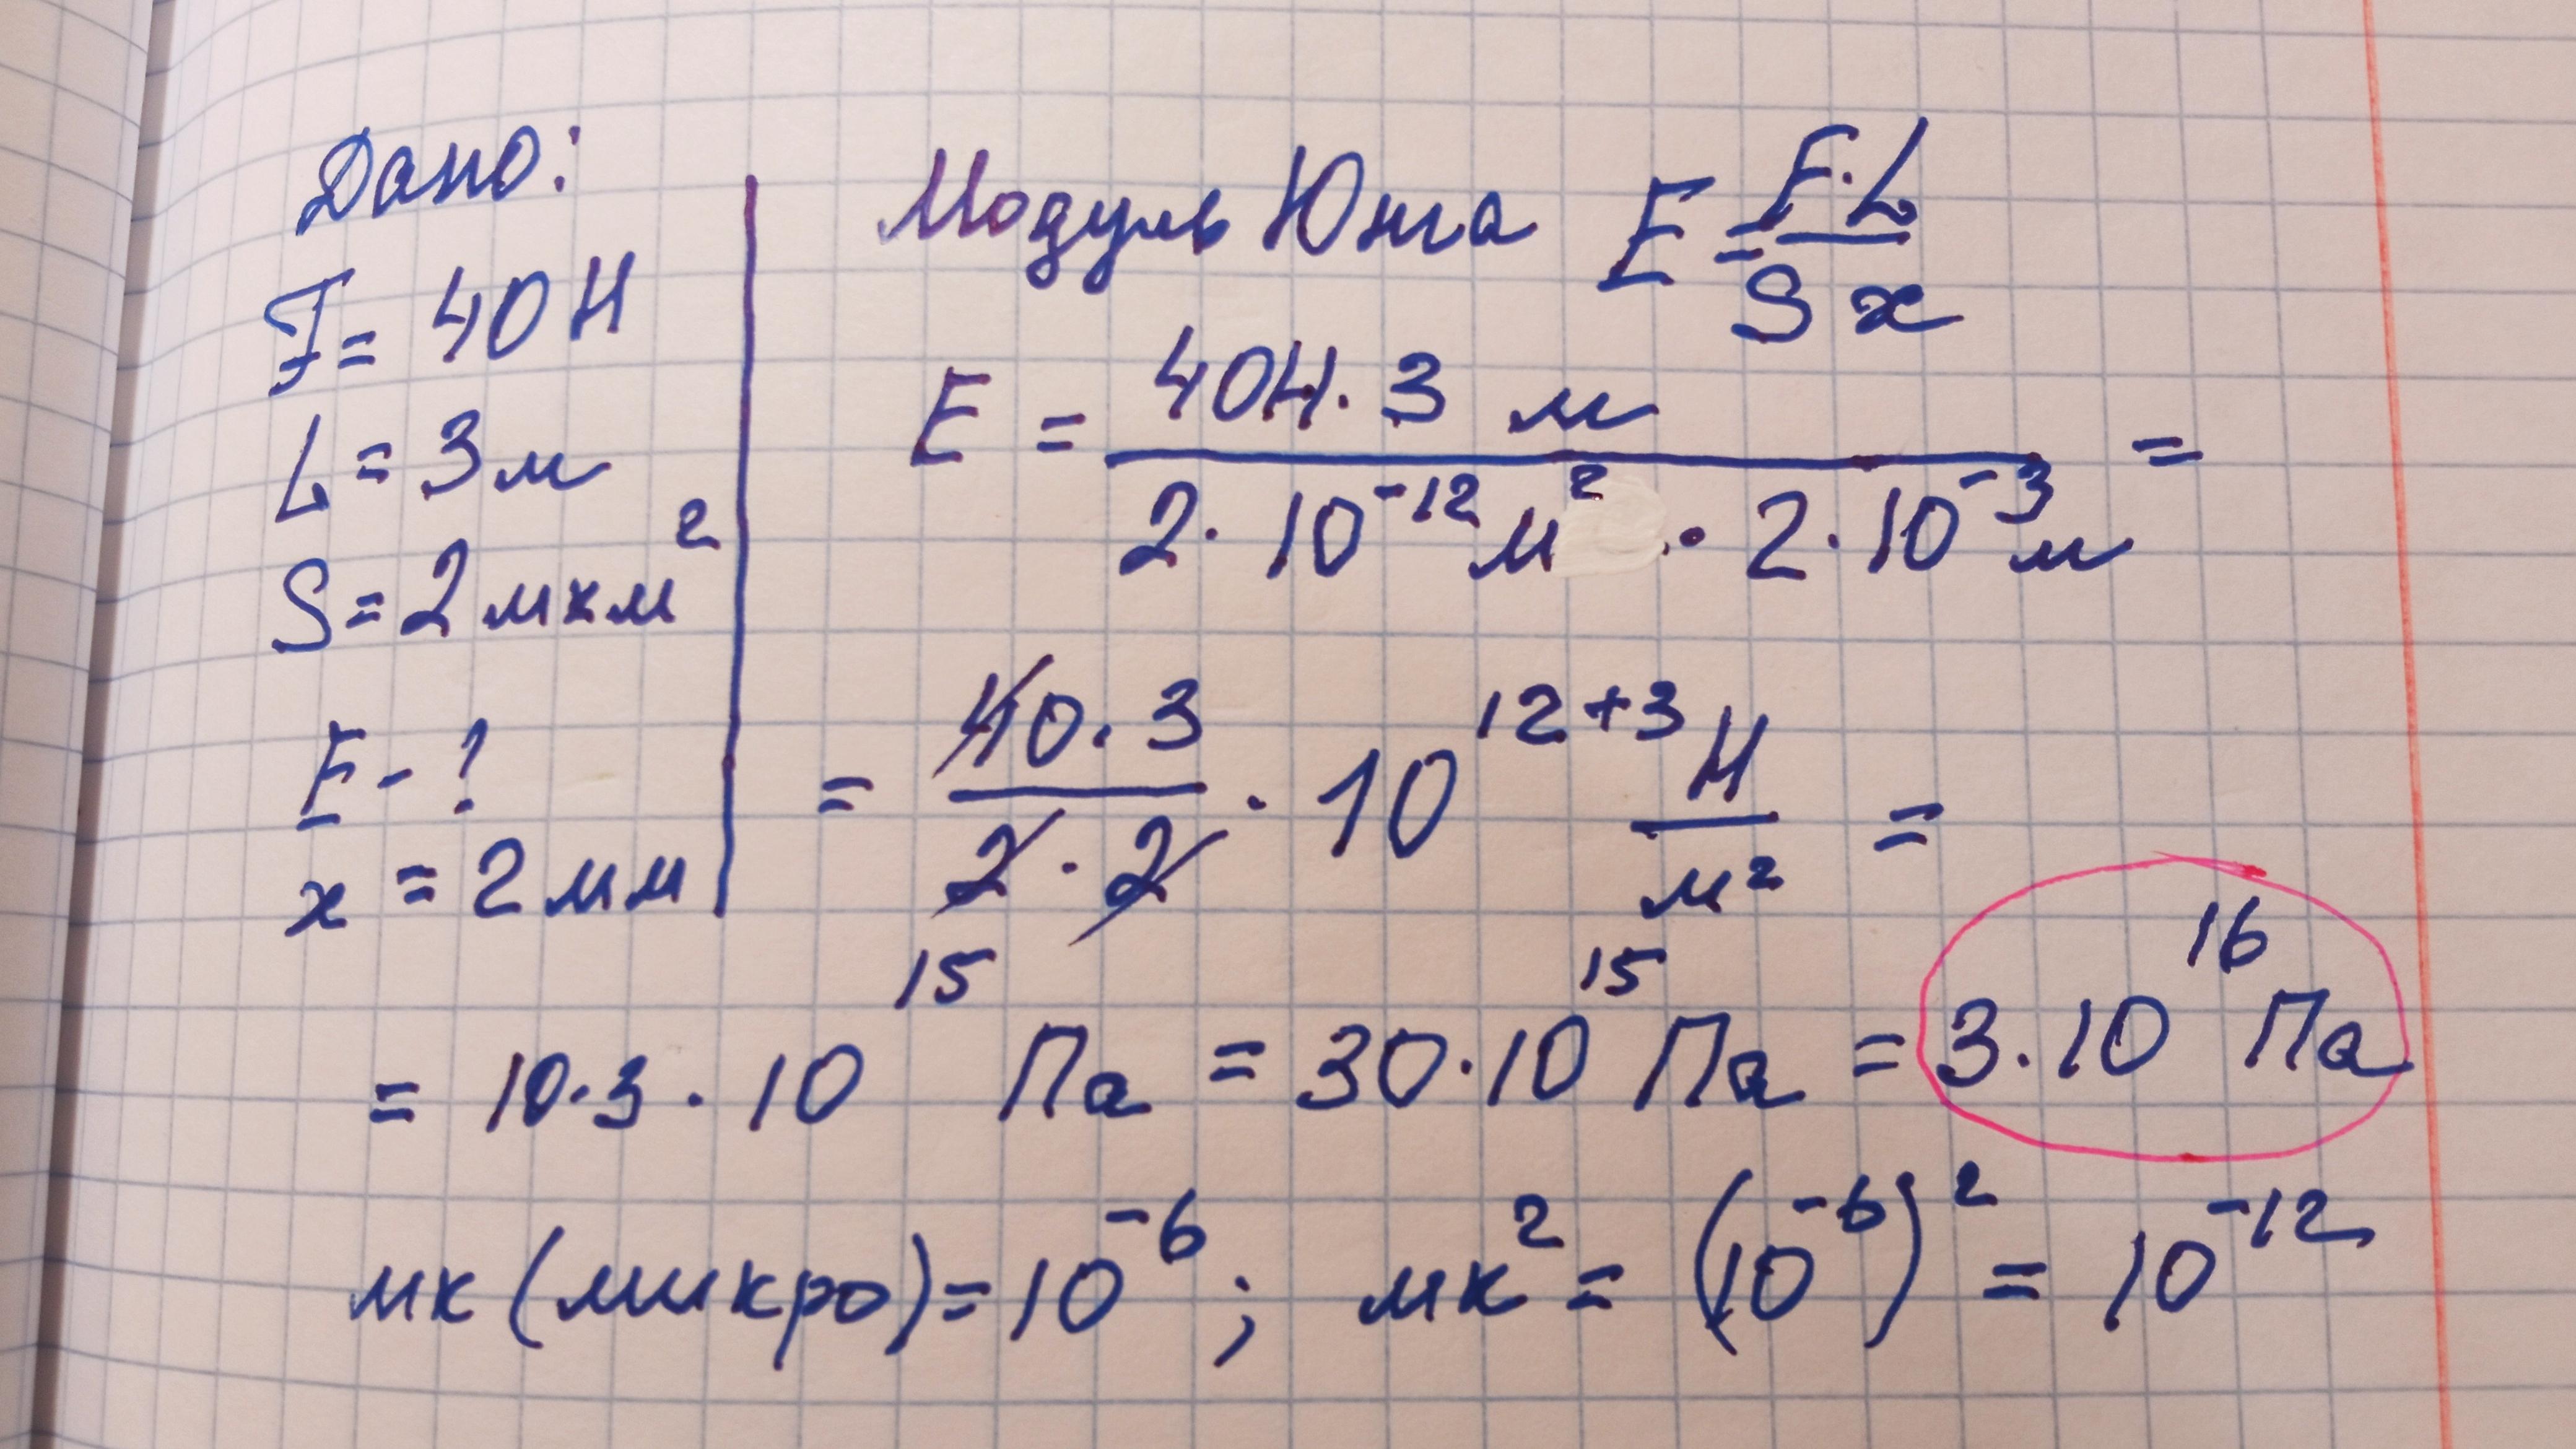 Дано:
F = 40 Н
L = 3 м
S = 2 мкм²
E - ?
x = 2 мм
Модуль Юнга E = F·L / S x
E = 40Н · 3 м / 2 · 10⁻¹² м² · 2 · 10⁻³ м =
= 40 · 3 / 2 · 2 · 10¹²⁺³ Н / м² =
= 10 · 3 · 10¹⁵ Па = 30 · 10¹⁵ Па = 3 · 10¹⁶ Па
мк (микро) = 10⁻⁶ ; мк² = (10⁻⁶)² = 10⁻¹²